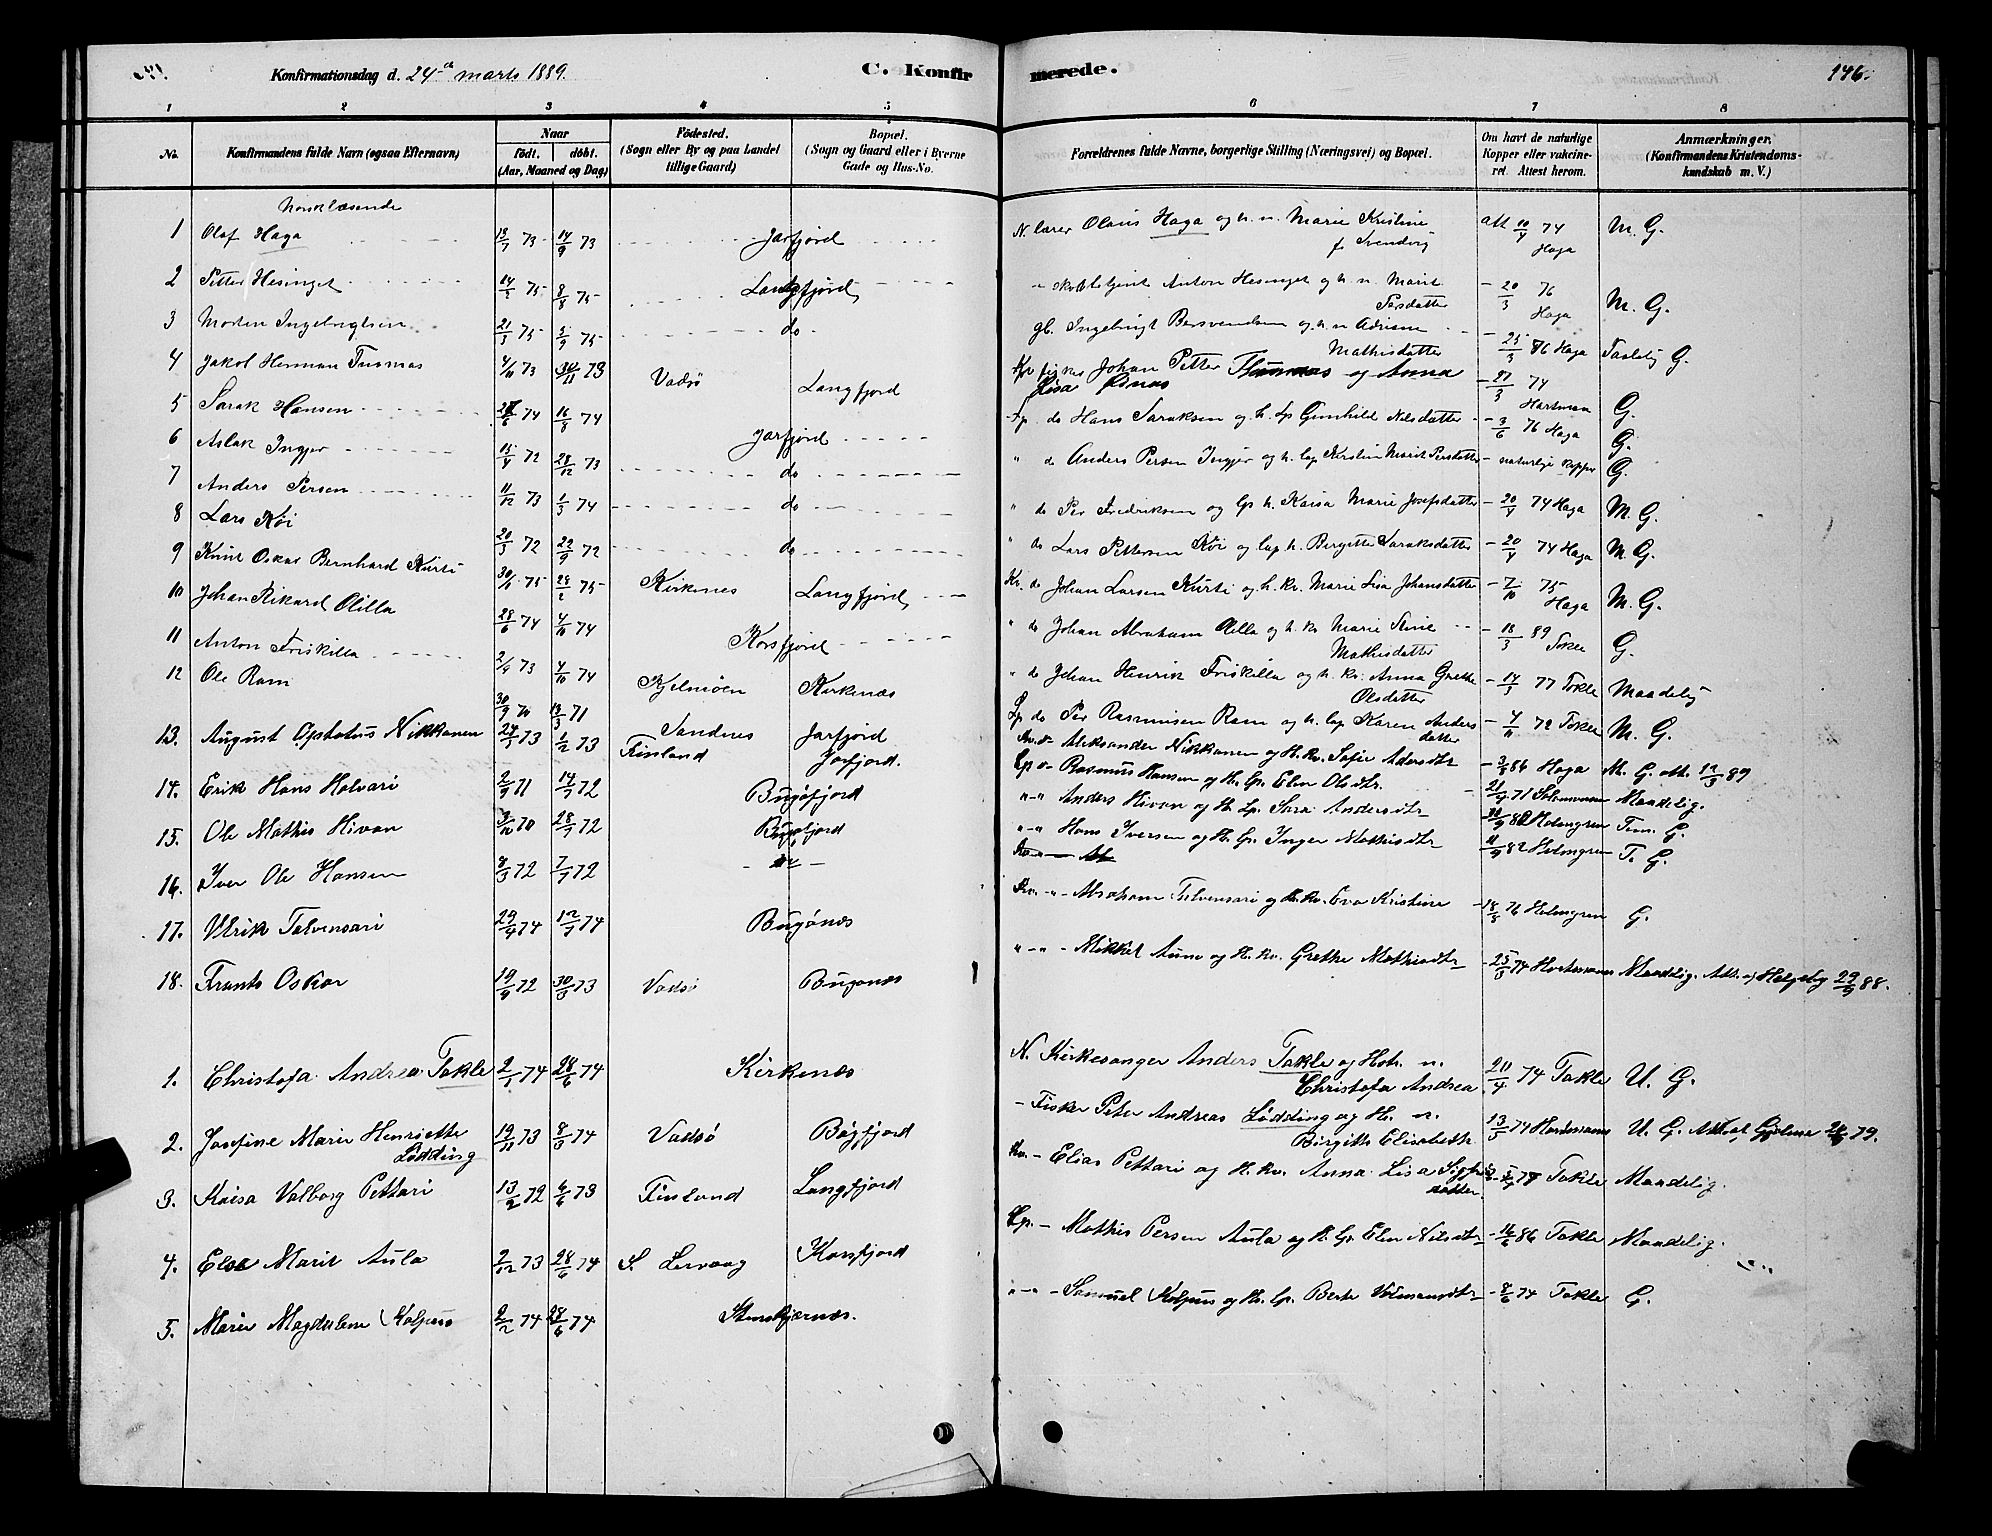 Konfirmationsdag d. 24de marts 1889.
C. Konfirmerede.
146.
1 2 3 4 5 6 7 8
No.
Konfirmandens fulde Navn (ogsaa Efternavn)
Naar
födt. döbt.
(Aar, Maaned og Dag)
Födested.
(Sogn eller By og paa Landet tillige Gaard)
Bopæl.
(Sogn og Gaard eller i Byerne Gade og Hus-No.
Forældrenes fulde Navne, borgerlige Stilling (Næringsvei) og Bopæl.
Om havt de naturlige Kopper eller vakcineret. Attest herom.
Anmærkninger.
(Konfirmandens Kristendomskundskab m. V.)
Norsklæsende
1 Olaf Haga 13/7 73 14/9 73 Jarfjord N. lærer Olaus Haga og h. n. Marie Kristine f. Svendvig att 10/4 74 Haga M. G.
2 Petter Hesinget 14/3 75 8/8 75 Langfjord Anton Hesinget og h. n. Marit Persdatter 20/3 76 Haga M. G.
3 Morten Ingebrigtsen 21/3 75 5/9 75 do gb. Ingebrigt Bersvendsen og h. n. Adriane Mathisdatter 25/3 86 Haga G.
4 Jakob Herman Tusmas 4/10 73 30/11 73 Vadsö Langfjord fisker Johan Petter og Anna Lisa 27/3 74 Hartman G.
5 Sarak Hansen 27/6 74 16/8 74 Jarfjord Lp. do Hans Saraksen og h. Lp Gunhild Nilsdatter 3/6 76 Haga G.
6 Aslak Ingjer 15/4 72 28/12 73 do " do Anders Persen Ingjer og h. lap Kirstin Marit Persdatter naturlige kopper G.
7 Anders Persen 11/12 73 1/3 74 do " do Per Fredriksen og lp h. Kaisa Marie Josefsdatter 20/4 74 Haga M. G.
8 Lars Köi 20/3 72 22/9 72 do " do Lars Pettersen Köi og lap h. Bergitte Saraksdatter 20/4 74 Haga M. G.
9 Knut Oskar Bernhard Kurti 30/1 75 28/2 75 Kirkenes Langfjord Kv. do Johan Larsen Kurti og h. kv. Marie Lisa Johansdatter 7/10 75 Haga M. G.
10 Johan Rikard Olilla 28/6 74 4/10 74 Korsfjord " do Johan Abraham Olilla og h. kv Marie Stine Mathisdatter 18/3 89 Tokle G.
11 Anton Friskilla 2/9 73 4/10 74 Kjelmöen Kirkenæs " do Johan Henrik Friskilla og h. kv. Anna Grethe Olsdatter 14/3 77 Tokle Maadelig
12 Ole Ram 30/9 70 13/3 71 Sandnes Jarfjord Lp do Per Rasmusen Ram og h. lap Karen Andersdatter 4/11 72 Tokle M. G.
13. August Nikkanen 24/1 73 1/2 73 Finland Jarfjord. Kv. Aleksander Nikkanen og H. kv. Sofie Adersdtr 3/8 86 Haga M. G. att. 12/3 89
14. Erik Hans Halvari 2/9 71 14/7 72 Bugöfjord Lp Rasmus Hansen og H. Lp. Elen Olsdtr. 21/9 71 Maadelig.
15. Ole Mathis Hivan 3/10 70 28/7 72 Bugöfjord " Anders Hivan og H. Lp. Sara Andersdtr 82 Holmgren Tem. G.
16. Iver Ole Hansen 8/3 72 7/7 72 " Hans Iversen og H. Lp. Inger Mathisdtr 82 Holmgren T. G.
17. Ulrik Talvensari 29/4 74 12/7 74 Bugönæs Kv. Abraham Talvensari og H. Kv. Eva Kristine 18/8 76 Holmgren G.
18. Frants Oskar 19/9 72 30/3 73 Vadsö Bugönæs " Mikkel Aune og H. kv. Grethe Mathisdtr 25/3 74 Maadelig. Att. af Helgeby 29/9 88.
1. Christofa Andrea Takle 2/1 74 28/6 74 Kirkenæs N. Kirkesanger Anders Takle og Hstr. n. Christofa Andrea 20/4 74 Takle U. G.
2. Josefine Marie Henriette Lödding 19/11 73 8/3 74 Vadsö Bögfjord Fisker Peter Andreas Lödding og H. n. Birgitte Elisabeth 13/5 74 U. G. 79.
3. Kaisa Valborg Pettari 13/2 72 6/6 73 Finland Langfjord Kv. Elias Pettari og H. kv. Anna Lisa Sigfridsdatter 77 Takle Maadelig.
4. Else Marit Aula 2/12 73 28/6 74 S. Lervaag Korsfjord Lp. Mathis Persen Aula og H. Lp. Elen Nilsdtr 16/6 86 Takle Maadelig.
5. Marie Magdalene Kolpus 2/2 74 28/6 74 Stenskjærnæs. " Samuel Kolpus og H. Lp. Berte 8/6 74 Takle G.